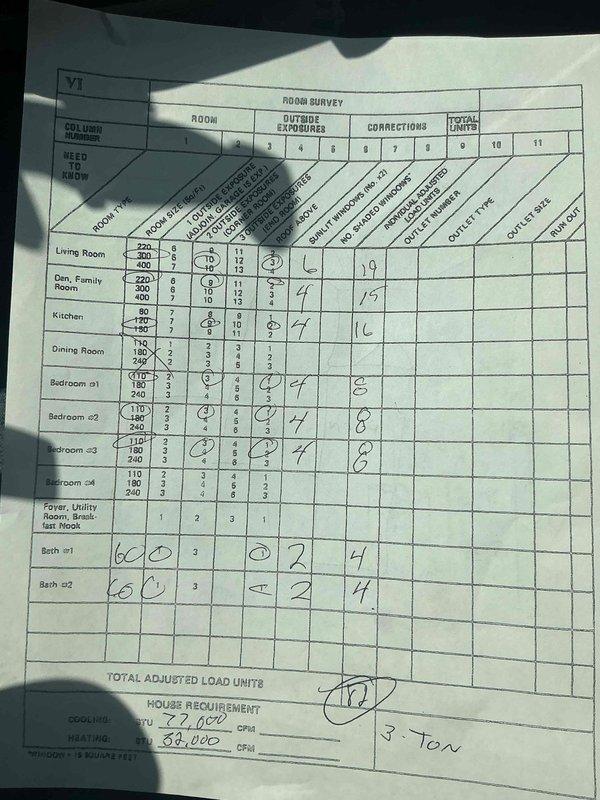 VI
ROOM SURVEY
COLUMN NUMBER
ROOM
OUTSIDE EXPOSURES
CORRECTIONS
TOTAL UNITS
1 2 3 4 5 6 7 8 9 10 11
NEED TO KNOW
ROOM TYPE
ROOM SIZE (Sq/Ft)
1 OUTSIDE EXPOSURE (ADJOIN. GARAGE IS EXP.)
2 OUTSIDE EXPOSURES (CORNER ROOM)
3 OUTSIDE EXPOSURES (END ROOM)
ROOF ABOVE
SUNLIT WINDOWS (No. x2)
NO. SHADED WINDOWS*
INDIVIDUAL ADJUSTED LOAD UNITS
OUTLET NUMBER
OUTLET TYPE
OUTLET SIZE
RUN OUT
Living Room
220 6 9 11
300 6 10 12 3
400 7 10 13
6 19
Den, Family Room
220 6 9 11
300 6 10 12 3
400 7 10 13 4
4 15
Kitchen
80 7 8 9 1
120 7 8 10 2
180 7 9 11 2
4 16
Dining Room
110 1 2 3 1
180 2 3 4 2
240 2 4 5 3
Bedroom #1
110 2 3 4 1
180 3 4 5 2
240 3 4 6 3
4 8
Bedroom #2
110 2 3 4 1
180 3 4 5 2
240 3 4 6 3
4 8
Bedroom #3
110 2 3 4 1
180 3 4 5 2
240 3 4 6 3
4 8
Bedroom #4
110 2 3 4 1
180 3 4 5 2
240 3 4 6 3
Foyer, Utility Room, Break-
fast Nook
1 2 3 1
Bath #1 60 1 3 1 2 4
Bath #2 60 1 3 1 2 4
TOTAL ADJUSTED LOAD UNITS 82
HOUSE REQUIREMENT
COOLING: BTU 77,000 CFM
HEATING: BTU 32,000 CFM
3-TON
*WINDOW = 15 SQUARE FEET